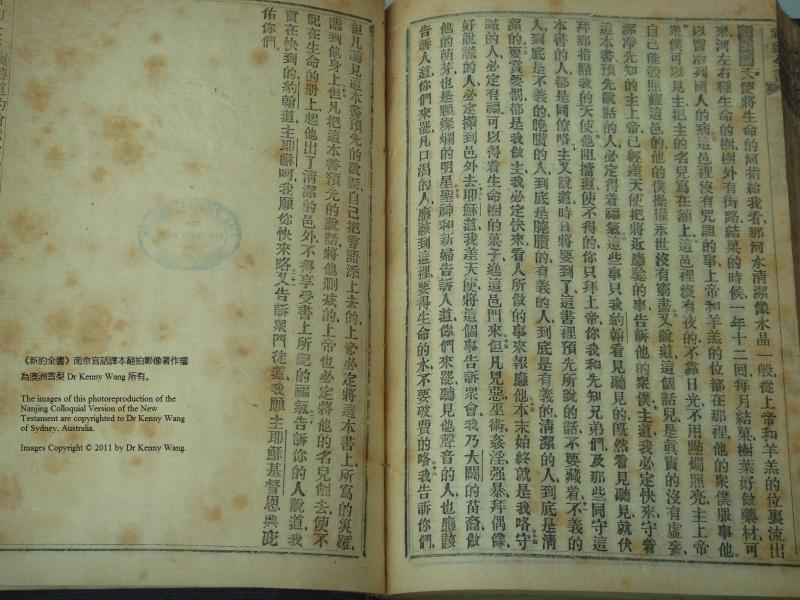 天使將生命的河指給我看、那河水清潔像水晶一般、從上帝和羊羔的位裏流出
來、河左右種生命的樹、樹外有街路、結菓的時候、一年十二回、每月結菓、樹葉好做藥材、可
以醫治列國人的病、這邑裡沒有咒詛的事、上帝和羊羔的位都在那裡、他的衆僕服事他、
衆僕可以見主、把主的名兒寫在額上、這邑裡沒有夜的、不靠日光、不用點燭照亮、主上帝
自己能彀照耀這邑的、他的僕操權、永世沒有窮盡、又說道、這個話兒是眞實的、沒有虛妄、
潔淨先知的主上帝、已經差天使把將近應驗的事告訴他的衆僕、主道、我必定快來、守着
這本書預先說話的人、必定得着福氣、這些事只我約翰看見聽見的、旣然看見聽見、就伏
拜那指點我的天使、他阻擋道、使不得的、你只拜上帝、你我和先知兄弟們、及那些同守這
本書的人、都是同僚咯、主又說道、時日將要到了、這書裡預先所說的話、不要藏着、不義的
人、到底是不義的、腌臢的人、到底是腌臢的、有義的人、到底是有義的、清潔的人、到底是清
潔的、要賞要罰、都是我做主、我必定快來、看人所做的事來報應他、本末始終、就是我咯、守
誡的人、必定有福、可以得着生命樹的菓子、進這邑門來、但凡兇惡巫術、姦淫、强暴、拜偶像、
好說謊的人、必定攆到邑外去、耶穌道、我差天使、將這個事告訴衆會、我乃大闢的苗裔、做
他的萌芽、也是顆燦爛的明星、聖神和新婦告訴人道、你們來罷、聽見他聲音的人、也應該
告訴人道、你們來罷、凡口渴的人、應該到這裡、要得生命的水、不要破費的咯、我告訴你們、
但凡聽見這本書預先的說話、自己把言語添上去的、上帝必定將這本書上、所寫的災難、
臨到他身上、但凡把這本書預先的說話、將他刪壞的、上帝也必定將他的名兒刪去、使不
記在生命的册上、趕他出了清潔的邑外、不得享受書上所記的福氣、告訴你的人說道、我
實在快到的、約翰道、主耶穌呵、我願你快來咯、又告訴衆門徒道、我願主耶穌基督恩典庇
佑你們、
《新約全書》南京官話譯本翻拍影像著作權
為澳洲雪梨 Dr Kenny Wang 所有。
The images of this photoreproduction of the
Nanjing Colloquial Version of the New
Testament are copyrighted to Dr Kenny Wang
of Sydney, Australia.
Images Copyright © 2011 by Dr Kenny Wang.